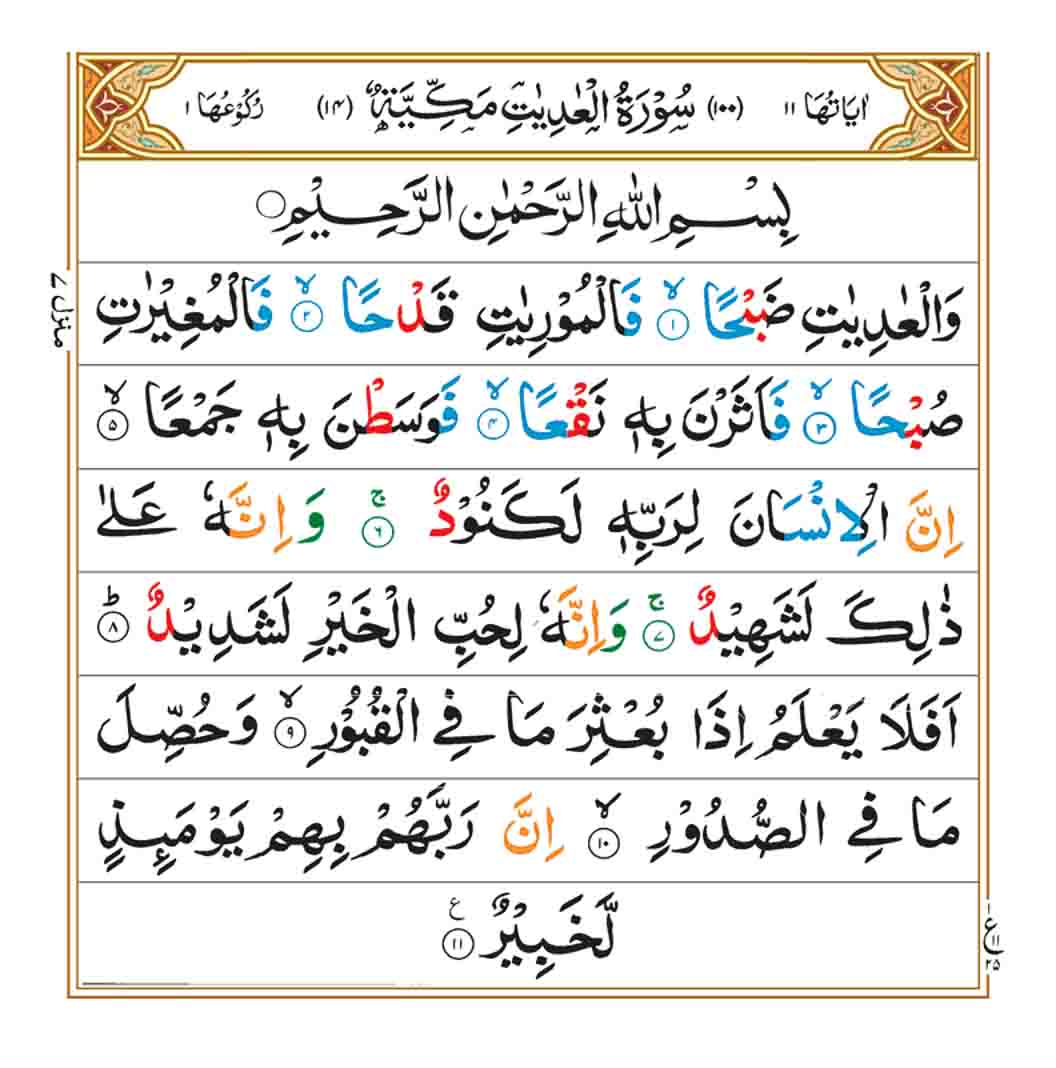 اٰيَاتُهَا ١١ (١٠٠) سُوْرَةُ الْعٰدِيٰتِ مَكِّيَّةٌ (١٤) رُكُوْعُهَا ١
بِسْمِ اللهِ الرَّحْمٰنِ الرَّحِيْمِ ○
وَالْعٰدِيٰتِ ضَبْحًا ۙ﴿١﴾ فَالْمُوْرِيٰتِ قَدْحًا ۙ﴿٢﴾ فَالْمُغِيْرٰتِ
صُبْحًا ۙ﴿٣﴾ فَاَثَرْنَ بِهٖ نَقْعًا ۙ﴿٤﴾ فَوَسَطْنَ بِهٖ جَمْعًا ۙ﴿٥﴾
اِنَّ الْاِنْسَانَ لِرَبِّهٖ لَكَنُوْدٌ ۚ﴿٦﴾ وَاِنَّهٗ عَلٰى
ذٰلِكَ لَشَهِيْدٌ ۚ﴿٧﴾ وَاِنَّهٗ لِحُبِّ الْخَيْرِ لَشَدِيْدٌ ؕ﴿٨﴾
اَفَلَا يَعْلَمُ اِذَا بُعْثِرَ مَا فِي الْقُبُوْرِ ۙ﴿٩﴾ وَحُصِّلَ
مَا فِي الصُّدُوْرِ ۙ﴿١٠﴾ اِنَّ رَبَّهُمْ بِهِمْ يَوْمَئِذٍ
لَّخَبِيْرٌ ﴿١١﴾ ع
منزل ٧
١
ع ١١
٢٥